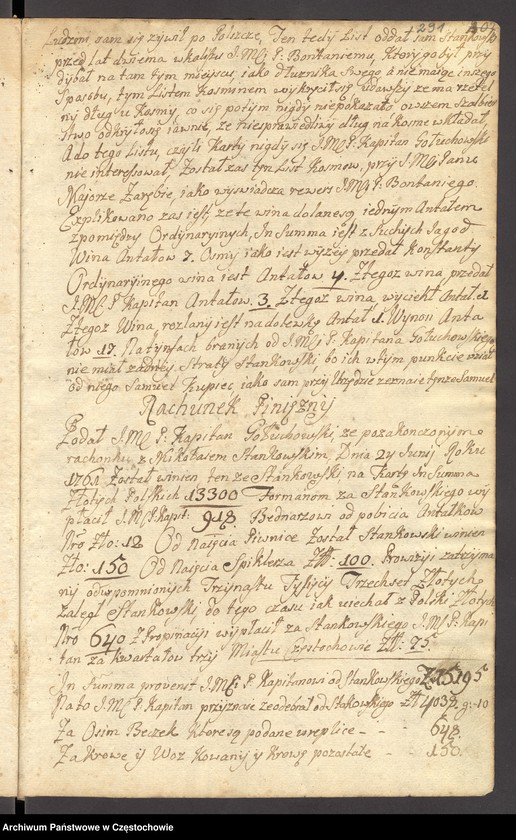 291
Ludzmi sam się zywił po Polszcze, Ten tedy List oddał sam Stankowski
przed lat dwiema w kolsku J.M.C. P: Bontaniemu, Ktory go był przy
dybał na tam tym mieyscu, iako dłuznika swego a nie maiąc inszego
Sposobu, tym Listem Kosminem wykręcił się udawszy ze ma rzetel
ny dług u Kosmy, co się potym nigdy niepokazało, owszem Szalbier
stwo odkryło się iawnie, że niesprawiedliwy dług na kosme wkładał,
A do tego Listu, czyli Karty nigdy się J.M.C. P. Kapitan Gołuchowski
nie interessował, Został zas ten List Kosmow, przy J.M.C. Panu
Majorze Zarębie, iako wyswiadcza rewers J.M.C. P. Bontaniego.
Explikowano zas iest, ze te wina dolanesą, iednym Antałem
zpomiędzy Ordynaryinych, In Summa iest z Suchych Jagod
Wina Antałow 7. Osmy iako iest wyżey przedał Konstanty
Ordynaryinego wina iest Antałow 4. Ztegoz wina przedał
J.M.C. P. Kapitan Antałow. 3. Ztegoz wina wyciekł Antał. 1
Ztegoz Wina, rozlany iest na dolewkę Antał 1. Wynosi Anta
łow 17. Na tynfach branych od J.M.C. P. Kapitana Gołuchowskiego
nie miał zadney Straty Stankowski, bo ich w tym punkcie
od niego Samuel Kupiec iako sam przy Urzędzie zeznaie tenze Samuel
Rachunek Pinięzny
Podał J.M.C. P: Kapitan Gołuchowski, ze po zakonczonym
rachonku z Mikołaiem Stankowskim, Dnia 24 Junij Roku
1761 został winien ten ze Stankowski na Kartę In Summa
Złotych Polskich 13300 Formanom za Stankowskiego wy
płacił J.M.C. P. Kapit: 918. Bednarzowi od pobicia Antałkow
Nro Zło: 12 Od Naięcia Piwnice został Stankowski winien
Zło: 150 Od Naięcia Spiklerza Złł: 100. Prowizyi zatrzyma
ney od wspomnionych Trzynastu Tysięcy Trzechset Złotych
zaległ Stankowski do tego czasu iak uiechał z Polski Złotych
Nro 640 z Propinacyi wypłacił za Stankowskiego J.M.C. P. Kapi
tan za kwartałow trzy Miastu Częstochowie Złł: 75.
In Summa provenit J.M.C. P. Kapitanowi od Stankowskiego Złł 15195
Na to J.M.C. P. Kapitan przyznaie ze odebrał od Stakowskiego Złł 4038. g: 10
Za Osim Beczek ktore są podane w replice - - 648.
Za Krowe y Woz Kowany y Krowę pozostałe - 150.
Archiwum Państwowe w Częstochowie